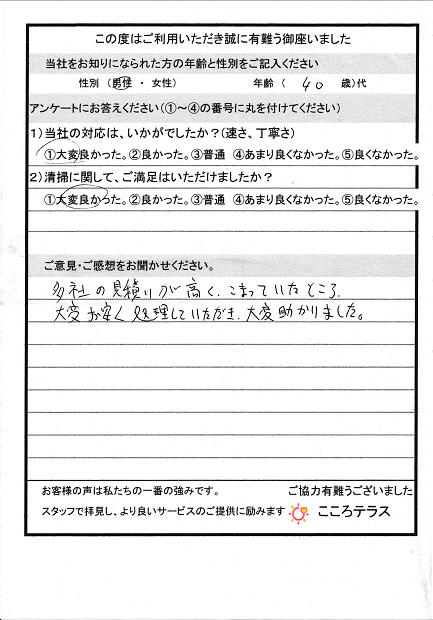 この度はご利用いただき誠に有難う御座いました
当社をお知りになられた方の年齢と性別をご記入ください
性別 （男性 ・ 女性） 年齢 （ 40 歳）代
アンケートにお答えください（①～④の番号に丸を付けてください）
1）当社の対応は、いかがでしたか？（速さ、丁寧さ）
①大変良かった。②良かった。③普通 ④あまり良くなかった。⑤良くなかった。
2）清掃に関して、ご満足はいただけましたか？
①大変良かった。②良かった。③普通 ④あまり良くなかった。⑤良くなかった。
ご意見・ご感想をお聞かせください。
多社の見積りが高く、こまっていたところ、
大変お安く処理していただき、大変助かりました。
お客様の声は私たちの一番の強みです。 ご協力有難うございました
スタッフで拝見し、より良いサービスのご提供に励みます こころテラス